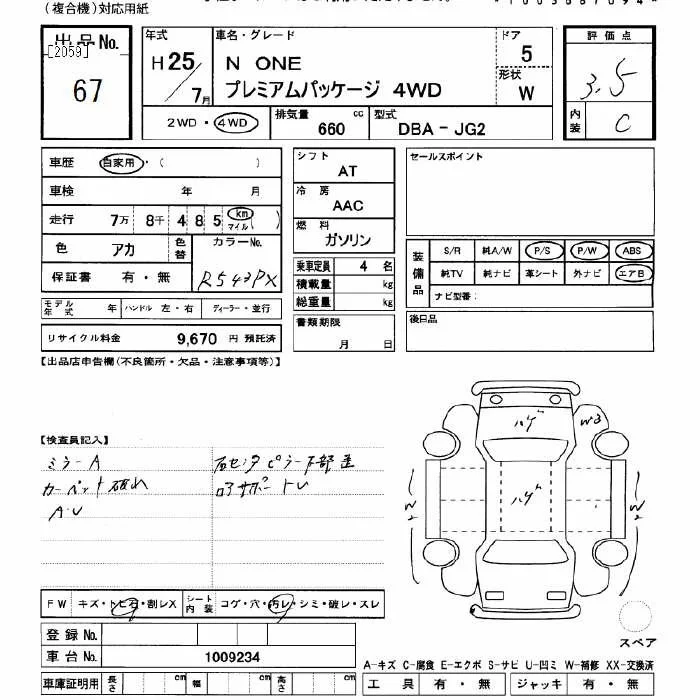 (複合機)対応用紙
出品No.
[2059]
67
年式
H25/7月
車名・グレード
N ONE
プレミアムパッケージ 4WD
ドア
5
形状
W
評価点
3.5
内装
C
2WD・4WD
排気量 660 cc
型式 DBA - JG2
車歴 自家用・( )
車検 年 月
走行 7万 8千 4 8 5 km マイル( )
色 アカ 色替
カラーNo.
R543PX
保証書 有・無
モデル年式 年 ハンドル 左・右 ディーラー・並行
リサイクル料金 9,670 円 預託済
シフト
AT
冷房
AAC
燃料
ガソリン
乗車定員 4 名
積載量 kg
総重量 kg
書類期限
月 日
セールスポイント
装備品
S/R 純A/W P/S P/W ABS
純TV 純ナビ 革シート 外ナビ エアB
ナビ型番:
後日品
【出品店申告欄(不良箇所・欠品・注意事項等)】
【検査員記入】
ミラーA
カーペット破れ
A・U
右センタピラー下部歪
ロアサポートU
ハゲ
W3
ハゲ
W2
W2
FW キズ・トビ石・割レX
シート内装 コゲ・穴・汚レ・シミ・破レ・スレ
登録No.
車台No. 1009234
車庫証明用 長さ cm 幅 cm 高さ cm
スペア
A-キズ C-腐食 E-エクボ S-サビ U-凹ミ W-補修 XX-交換済
工具 有・無 ジャッキ 有・無